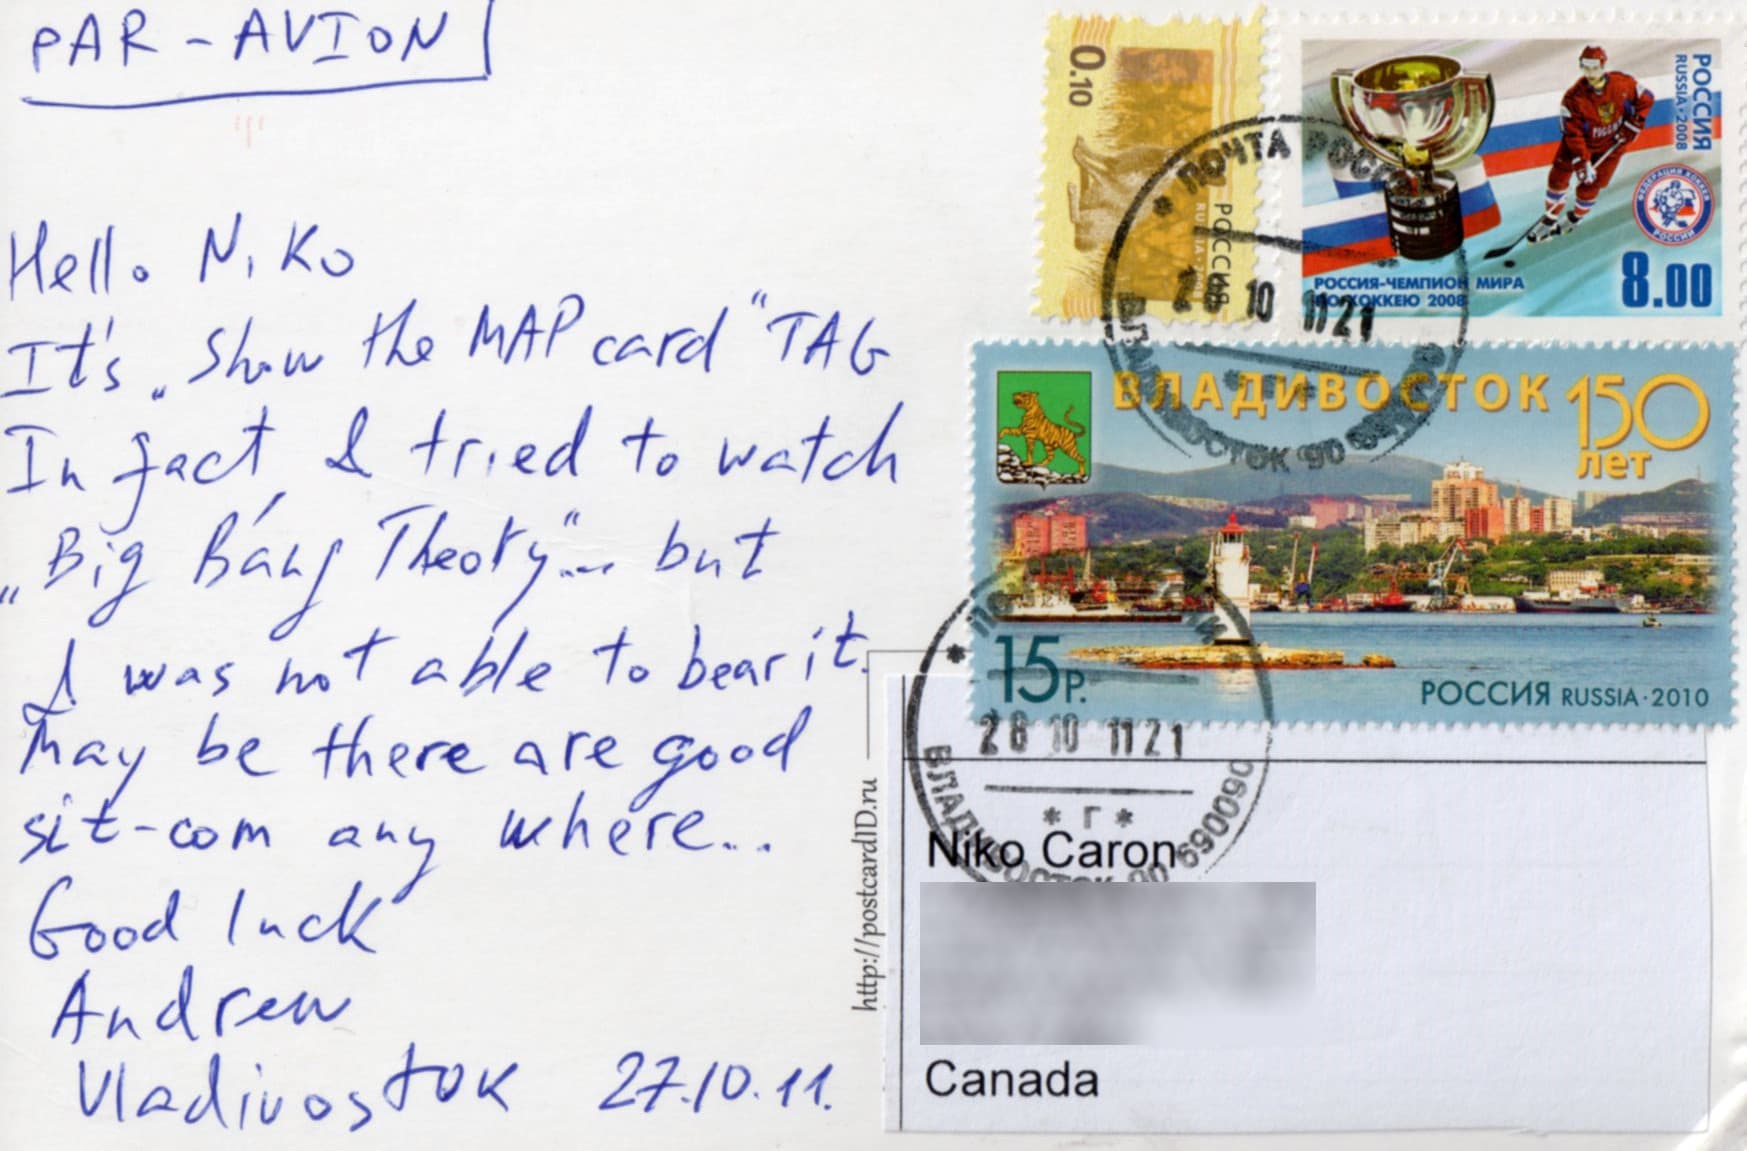 PAR-AVION
Hello Niko
It's „Show the MAP card "TAG
In fact I tried to watch
„Big Bang Theory"... but
I was not able to bear it.
May be there are good
sit-com any where...
Good luck
Andrew
Vladivostok 27.10.11.
0.10
РОССИЯ
RUSSIA
РОССИЯ
RUSSIA·2008
ФЕДЕРАЦИЯ ХОККЕЯ
РОССИИ
РОССИЯ-ЧЕМПИОН МИРА
ПО ХОККЕЮ 2008
8.00
ПОЧТА РОССИИ
28 10 1121
ВЛАДИВОСТОК 90 690090
ВЛАДИВОСТОК 150
лет
15 Р.
РОССИЯ RUSSIA·2010
28 10 1121
* Г *
ВЛАДИВОСТОК 90 690090
http://postcardID.ru
Niko Caron
Canada